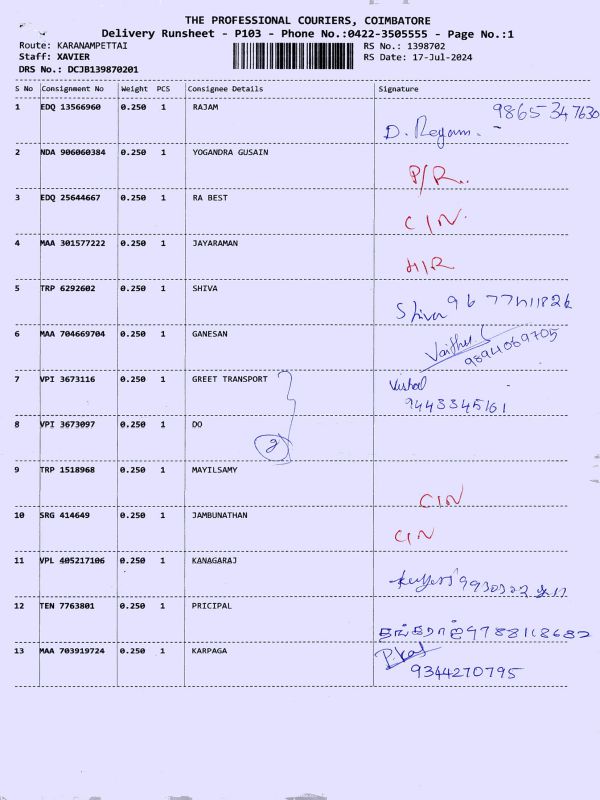 THE PROFESSIONAL COURIERS, COIMBATORE
Delivery Runsheet - P103 - Phone No.:0422-3505555 - Page No.:1
Route: KARANAMPETTAI RS No.: 1398702
Staff: XAVIER RS Date: 17-Jul-2024
DRS No.: DCJB139870201
S No Consignment No Weight PCS Consignee Details Signature
1 EDQ 13566960 0.250 1 RAJAM 9865347630
D. Regam.
2 NDA 906060384 0.250 1 YOGANDRA GUSAIN
P/R.
3 EDQ 25644667 0.250 1 RA BEST
C/N.
4 MAA 301577222 0.250 1 JAYARAMAN
H/R
5 TRP 6292602 0.250 1 SHIVA
Shiva
6 MAA 704669704 0.250 1 GANESAN
9894069705
7 VPI 3673116 0.250 1 GREET TRANSPORT
9443345161
8 VPI 3673097 0.250 1 DO
2
9 TRP 1518968 0.250 1 MAYILSAMY
C/N
10 SRG 414649 0.250 1 JAMBUNATHAN
C/N
11 VPL 405217106 0.250 1 KANAGARAJ
12 TEN 7763801 0.250 1 PRICIPAL
தங்கராஜ் 9788118682
13 MAA 703919724 0.250 1 KARPAGA
9344270795